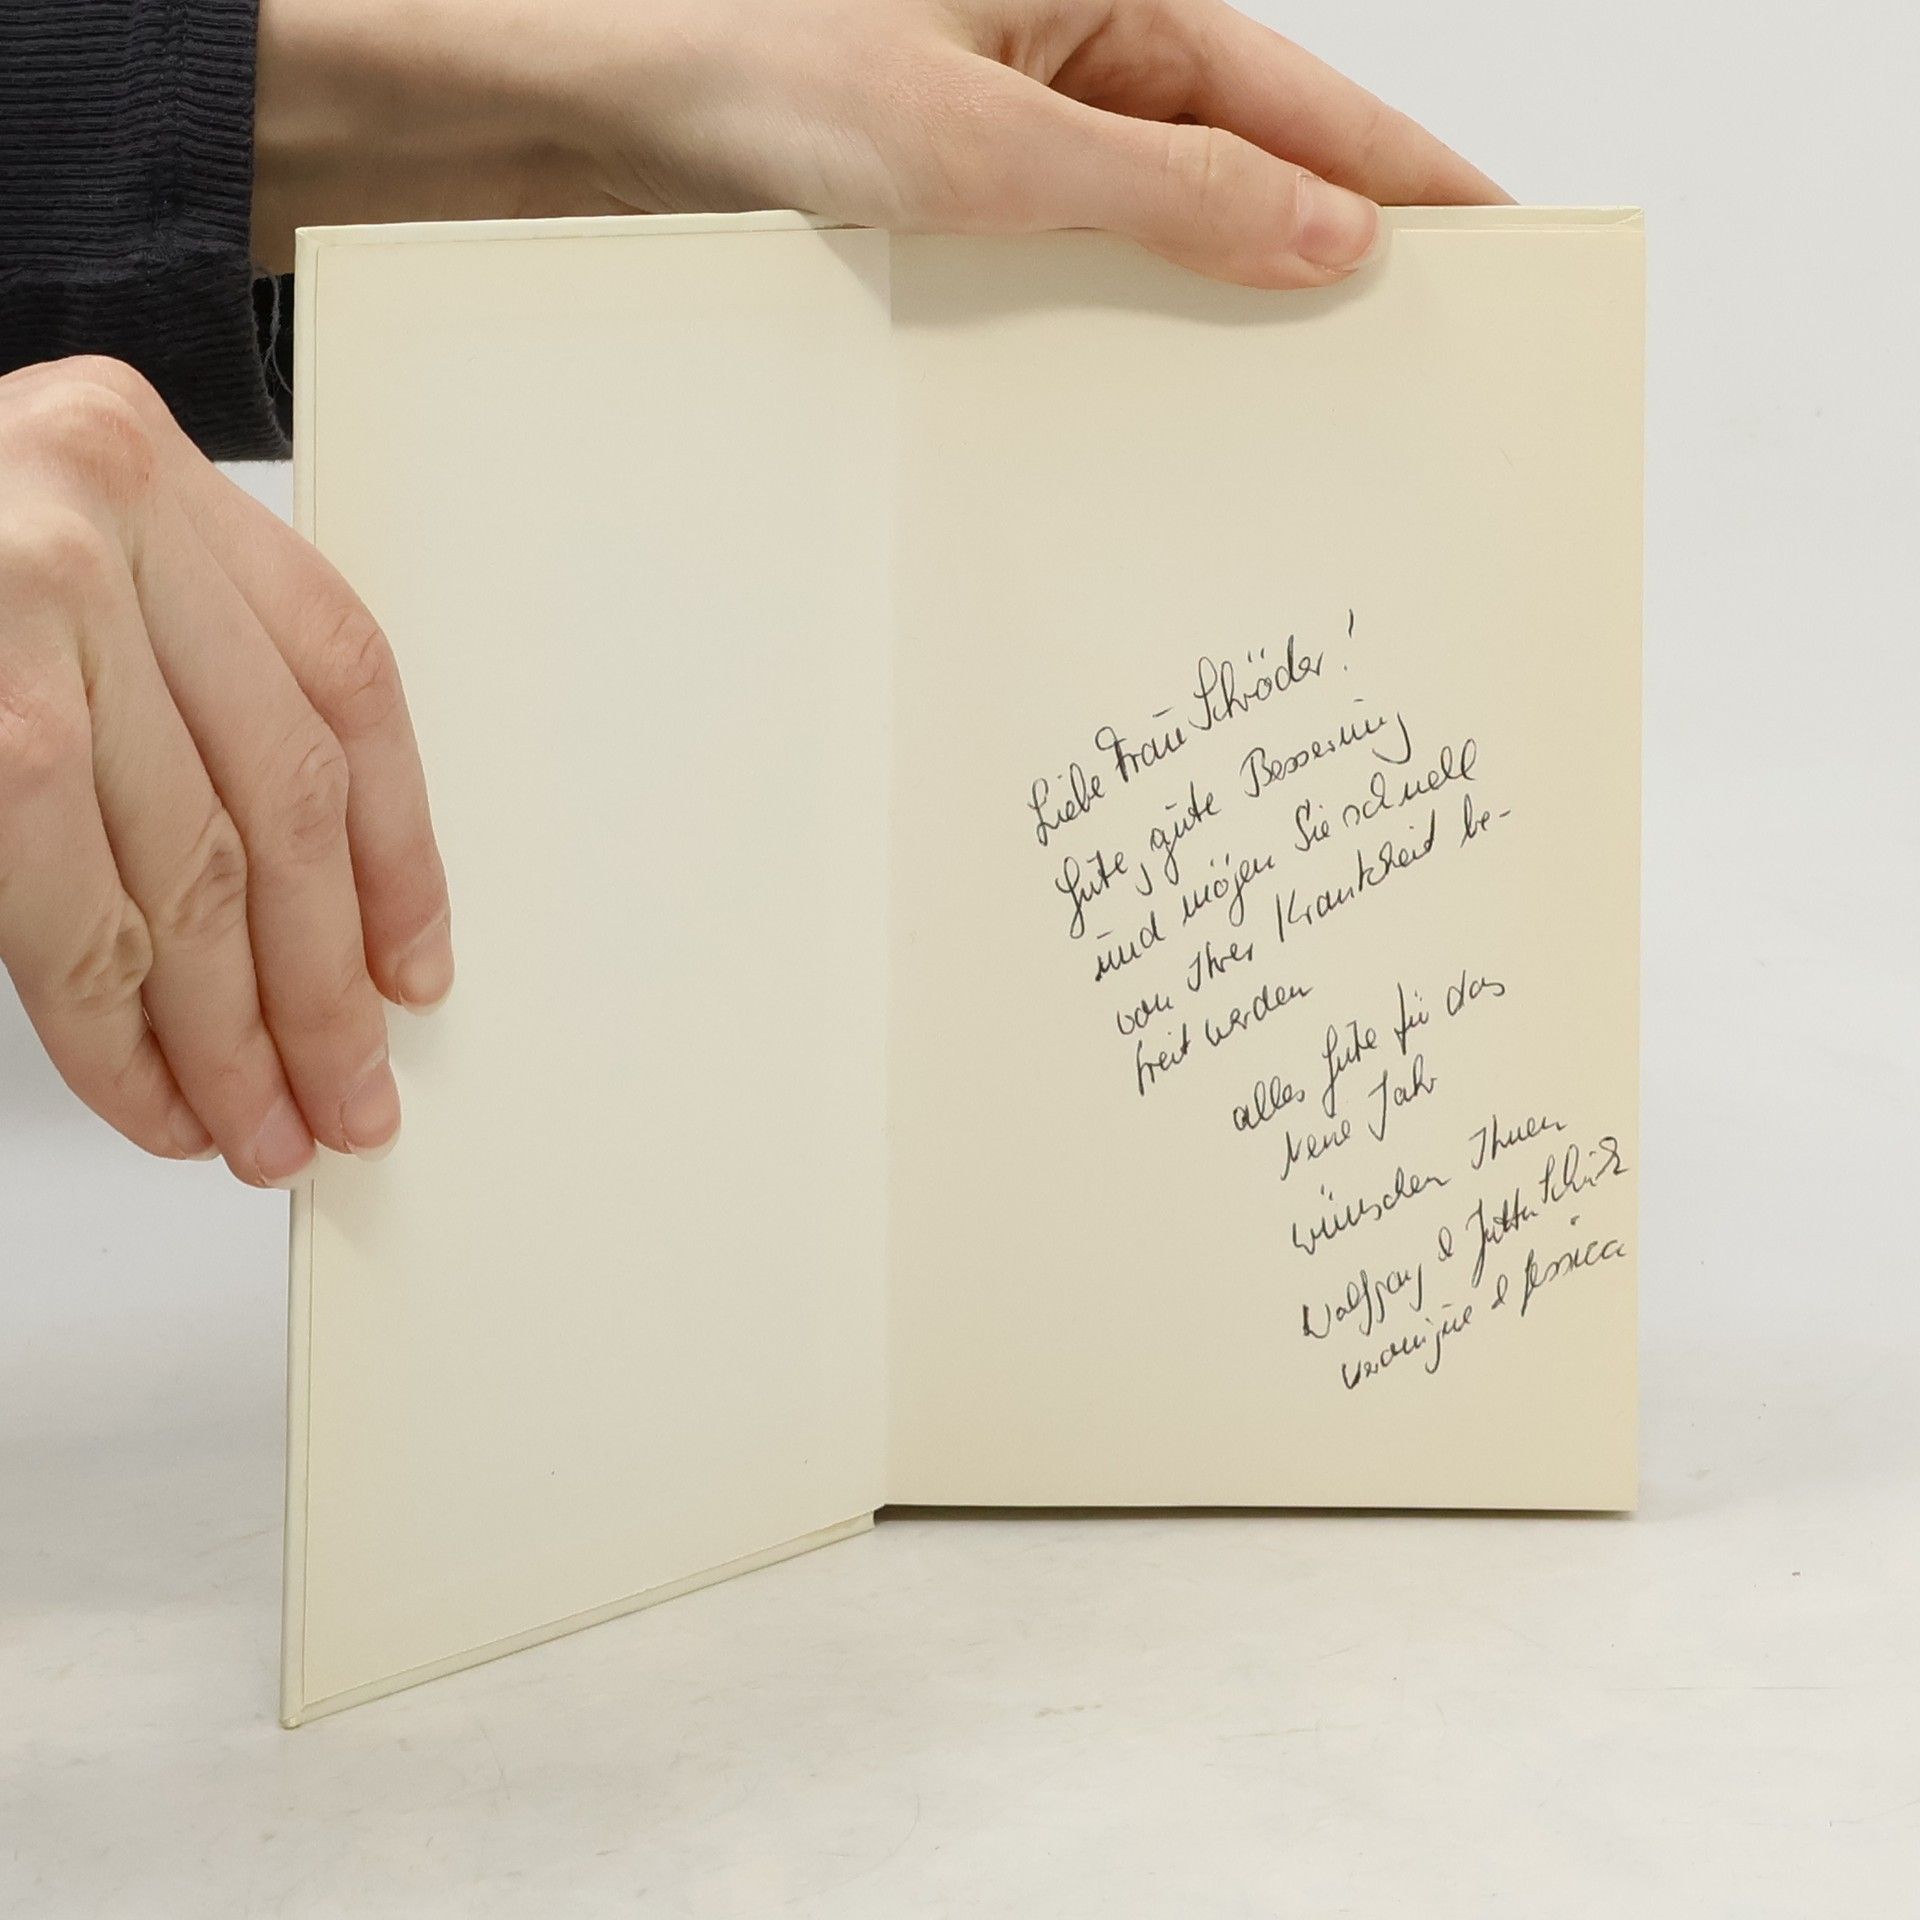 Liebe Frau Schröder!
Gute, gute Besserung
und mögen Sie schnell
von Ihrer Krankheit be-
freit werden
alles Gute für das
Neue Jahr
wünschen Ihnen
Wolfgang & Jutta
Veronique & Jessica